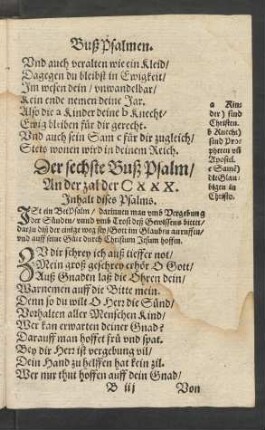 Buß Psalmen.
Vnd auch veralten wie ein Kleid/
Dagegen du bleibst in Ewigkeit/
Im wesen dein / vnwandelbar/
Kein ende nemen deine Jar.
Also die a Kinder deine b Knecht/
Ewig bleiben für dir gerecht.
Vnd auch sein Sam c für dir zugleich/
Stets wonen wird in deinem Reich.
a Kin-
der) sind
Christen.
b Knecht)
sind Pro-
pheten vñ
Apostel.
c Same)
die Glau-
bigen in
Christo.
Der sechste Buß Psalm/
An der zal der CXXX.
Inhalt dises Psalms.
ISt ein BetPsalm / darinnen man vmb Vergebung
der Sünden / vnnd vmb Trost deß Gewissens bittet/
daß diß der einige weg sey/ Gott im Glauben anruffen/
vnd auff seine Güte durch Christum Jesum hoffen.
ZV dir schrey ich auß tieffer not/
Mein groß geschrey erhör O Gott/
Auß Gnaden laß die Ohren dein/
Warnemen auff die Bitte mein.
Denn so du wilt O Herr die Sünd/
Vorhalten aller Menschen Kind/
Wer kan erwarten deiner Gnad?
Darauff man hoffet frü vnd spat.
Bey dir Herr ist vergebung vil/
Dein Hand zu helffen hat kein zil.
Wer nur thut hoffen auff dein Gnad/
B iij Von